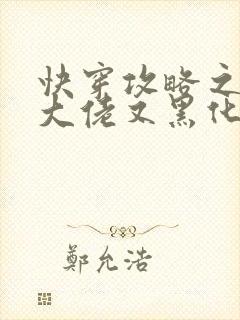 快穿攻略之
大佬又黑化
鄭允浩